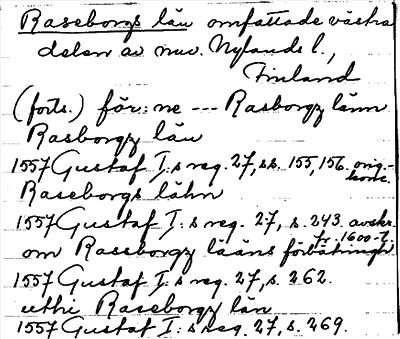 Raseborgs län omfattade västra
delen av nuv. Nylands l.,
Finland
(forts.) för: ne --- Rasborgz länn
Rasborgz län
1557 Gustaf I:s reg. 27, ss. 155, 156. orig.-
konc.
Raseborgs lähn
1557 Gustaf I:s reg. 27, s. 243. avskr.
fr. 1600-t.
om Raseborgz lääns förbätring
1557 Gustaf I:s reg. 27, s. 262.
uthi Raseborgz län
1557 Gustaf I:s reg. 27, s. 269.